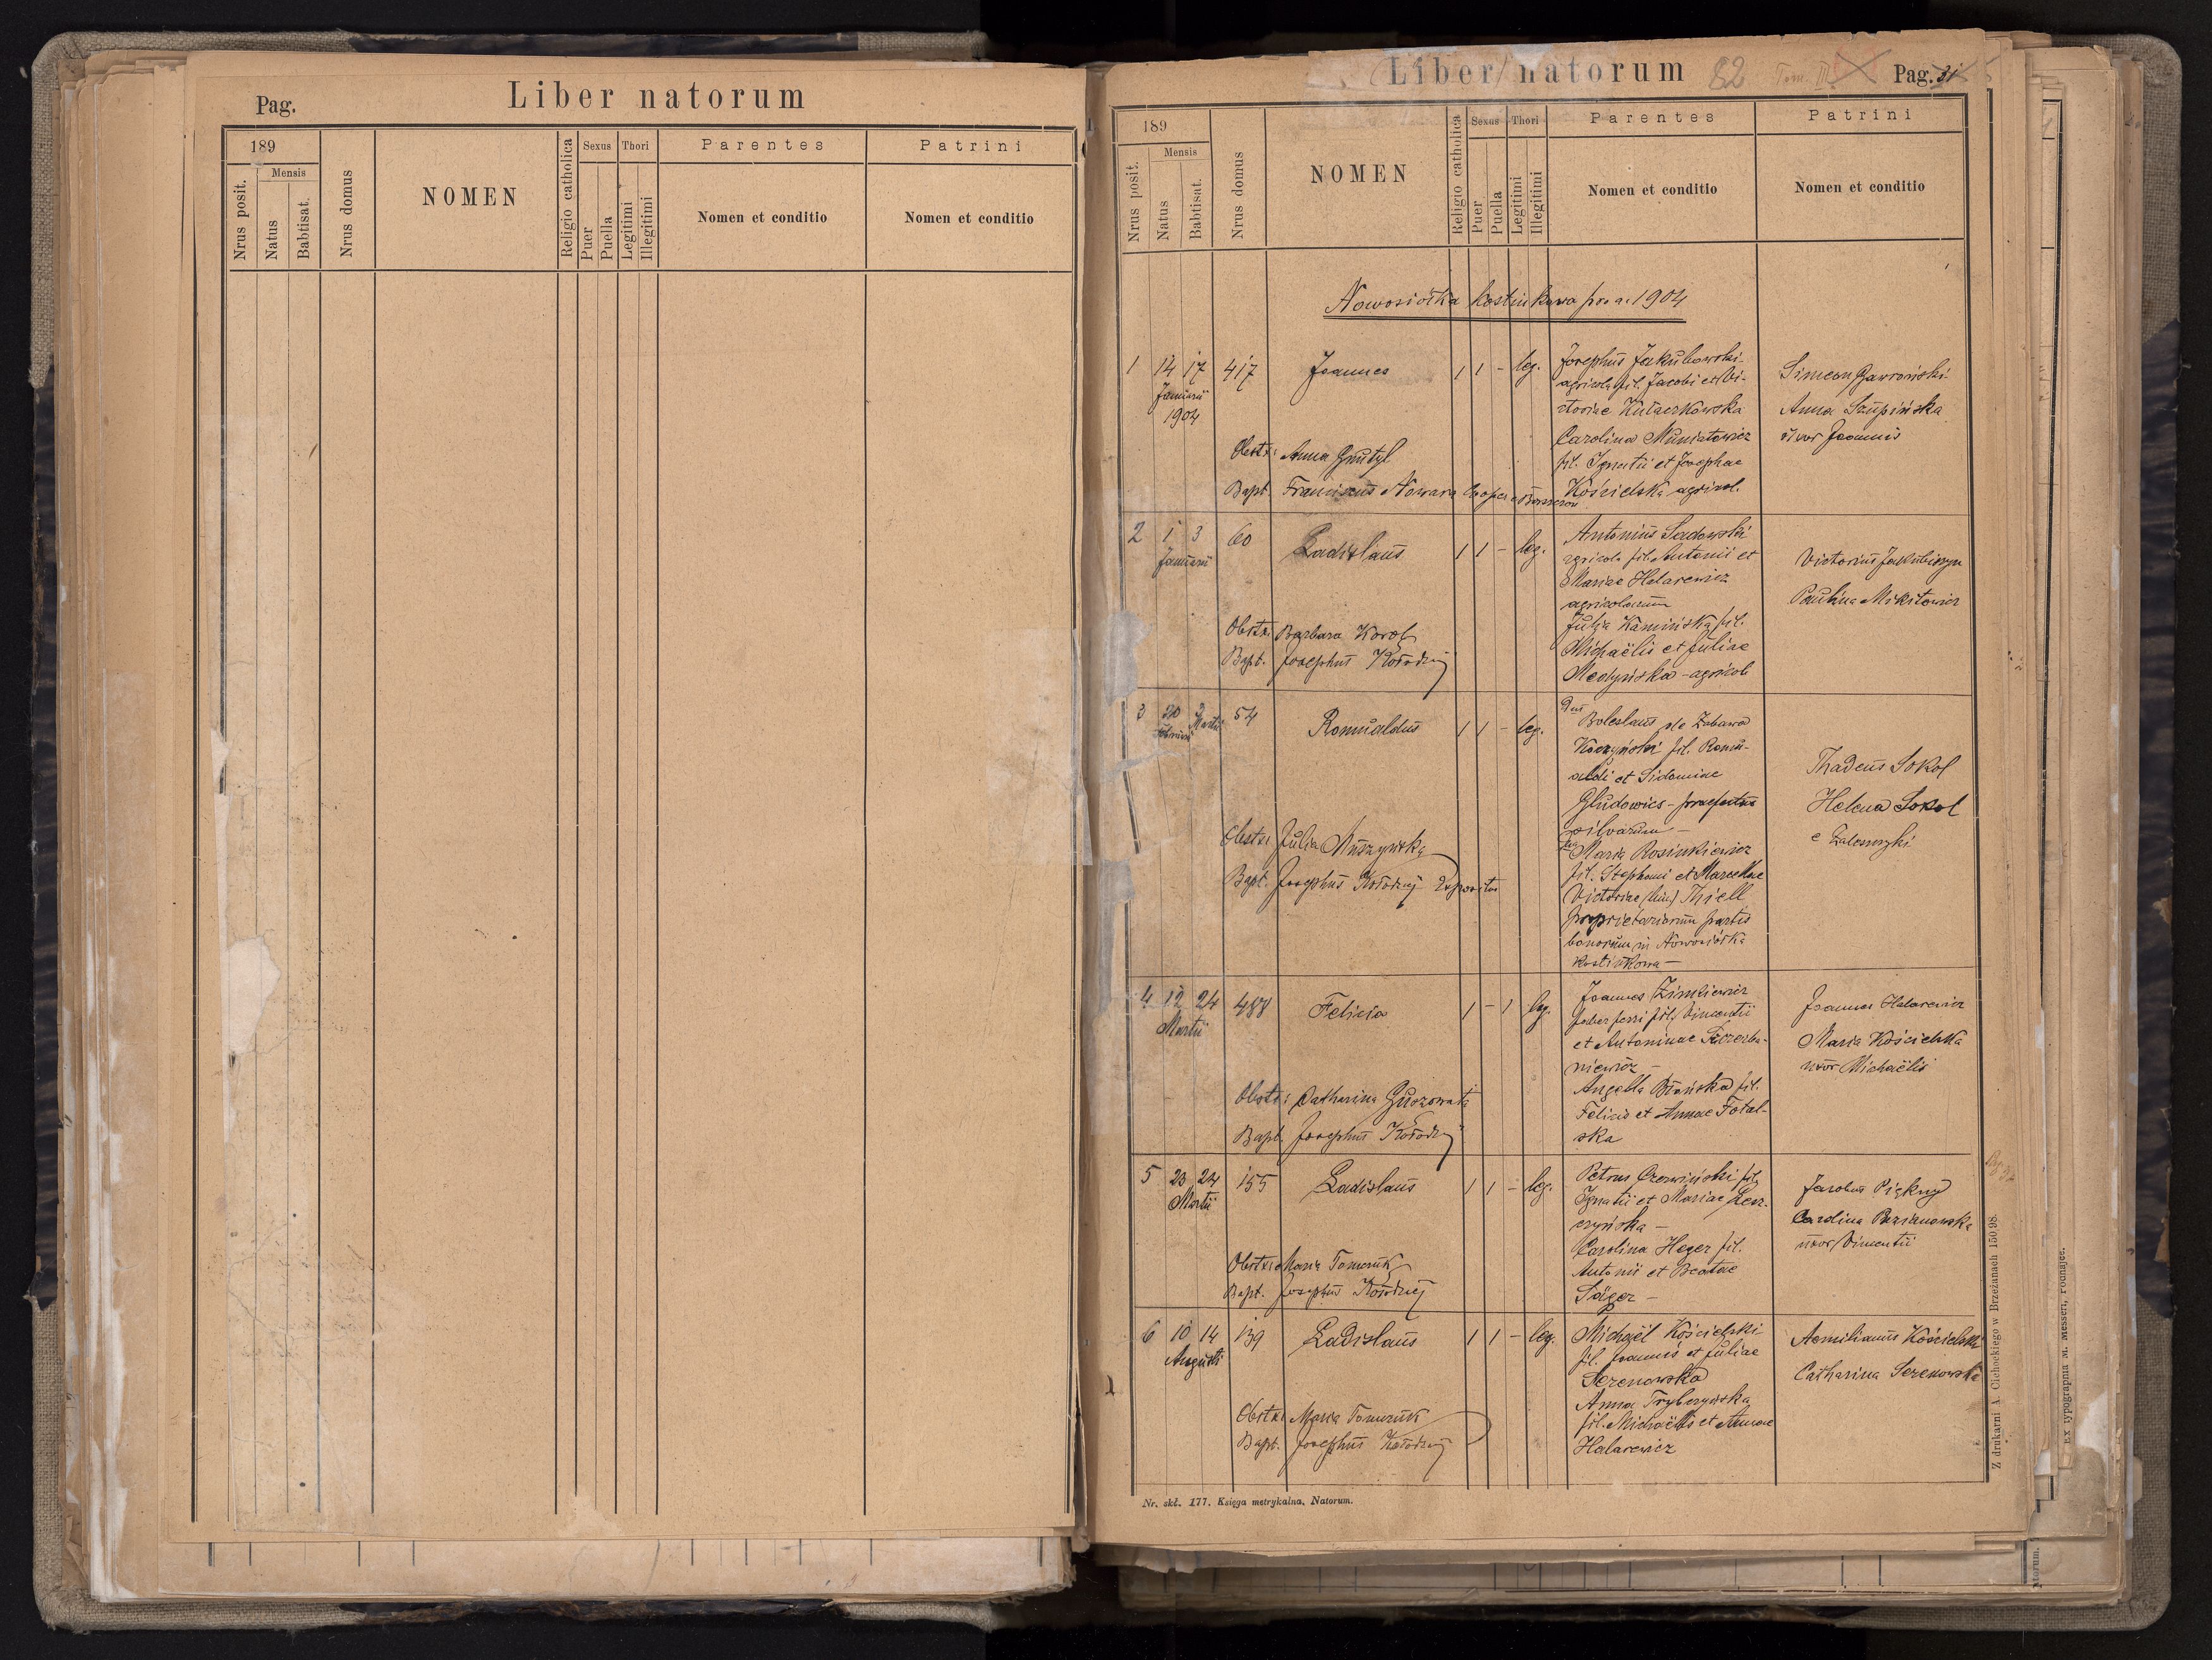 Pag.
Liber natorum
189
Mensis
Nrus posit.
Natus
Babtisat.
Nrus domus
NOMEN
Religio catholica
Sexus
Puer
Puella
Thori
Legitimi
Illegitimi
Parentes
Nomen et conditio
Patrini
Nomen et conditio
Liber natorum 82 Tom. III Pag. 31
189
Mensis
Nrus posit.
Natus
Babtisat.
Nrus domus
NOMEN
Religio catholica
Sexus
Puer
Puella
Thori
Legitimi
Illegitimi
Parentes
Nomen et conditio
Patrini
Nomen et conditio
Nowosiółka Kostiukowa pro a. 1904
1 14 17 417 Joannes 1 1 - leg.
Januarii
1904
Josephus Jakubowski
agricola fil. Jacobi et Vi-
ctoriae Kułaczkowska
Carolina Muniatowicz
fil. Ignatii et Josephae
Kościelska agricol.
Simeon Gawroński
Anna Szupińska
uxor Joannis
Obstx: Anna Gnutyl
Bapt. Franciscus Nowara
2 1 3 60 Ladislaus 1 1 - leg.
Januarii
Antonius Sadowski
agricola fil. Antonii et
Mariae Halarewicz
agricolarum
Julia Kamińska fil.
Michaëlis et Juliae
Medyńska - agricol
Paulina Mikitowicz
Obstx. Barbara Korol
Bapt. Josephus Kołodziej
3 20 2 54 Romualdus 1 1 - leg.
Februarii Martii
Dnus Boleslaus de Zabawa
Koczyński fil. Romu-
aldi et Sidoniae
Gludowics - praefectus
silvarum -
Maria Rosinkiewicz
fil. Stephani et Marcellae
Victoriae (bin.) Thiell
proprietariorum partis
bonorum in Nowosiółka
Kostiukowa -
Thadeus Sokol
Helena Sokol
e Zaleszczyki
Obstx: Julia Muszyńska
Bapt. Josephus Kołodziej Expositus
4 12 24 488 Felicia 1 - 1 leg.
Martii
Joannes Zimkiewicz
faber ferri fil. Vincentii
et Antoninae Szczerba-
niewicz -
Angela Błońska fil.
Felicis et Annae Fotal-
ska
Joannes Halarewicz
Maria Kościelska
uxor Michaëlis
Obstx: Catharina Guszowata
Bapt. Josephus Kołodziej
5 23 24 155 Ladislaus 1 1 - leg.
Martii
Petrus Czerwiński fil.
Ignatii et Mariae Lesz-
czyńska -
Carolina Heger fil.
Antonii et Beatae
Säger -
Jacobus Piękny
Carolina
uxor Vincentii
Obstx: Maria Tomczuk
Bapt. Josephus Kołodziej
6 10 14 139 Ladislaus 1 1 - leg.
Augusti
Michaël Kościelski
fil. Joannis et Juliae
Serenowska
Anna Tryberzyńska
fil. Michaëlis et Annae
Halarewicz
Aemilianus Kościelski
Catharina Serenowska
Obstx. Maria Tomczuk
Bapt. Josephus Kołodziej
Nr. skł. 177. Księga metrykalna. Natorum.
Z drukarni A. Cichockiego w Brzeżanach 150|98.
Ex typographia M. Messeri, Podhajce.